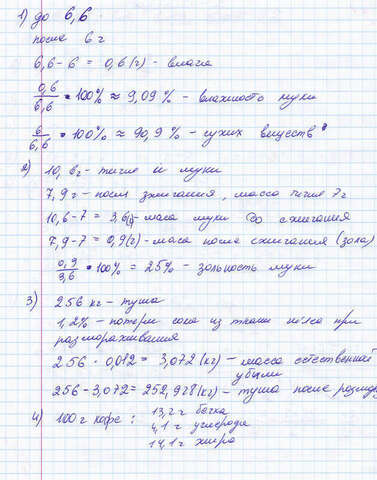 1) до 6,6
после 6 г
6,6 - 6 = 0,6 (г) - влага
0,6/6,6 • 100% ≈ 9,09 % - влажность муки
6/6,6 • 100% ≈ 90,9 % - сухих веществ
2) 10,6 г - тигле и муки
7,9 г - после зжигания, масса тигле 7 г
10,6 - 7 = 3,6 (г) - маса муки до сжигания
7,9 - 7 = 0,9 (г) - маса после сжигания (зола)
0,9/3,6 • 100% = 25% - зольность муки
3) 256 кг - туша
1,2% - потери сока из ткани мяса при
размораживания
256 • 0,012 = 3,072 (кг) - масса естественной
убыли
256 - 3,072 = 252,928 (кг) - туша после
4) 100 г кофе : 13,2 г белка
4,1 г углероди
14,1 г жира